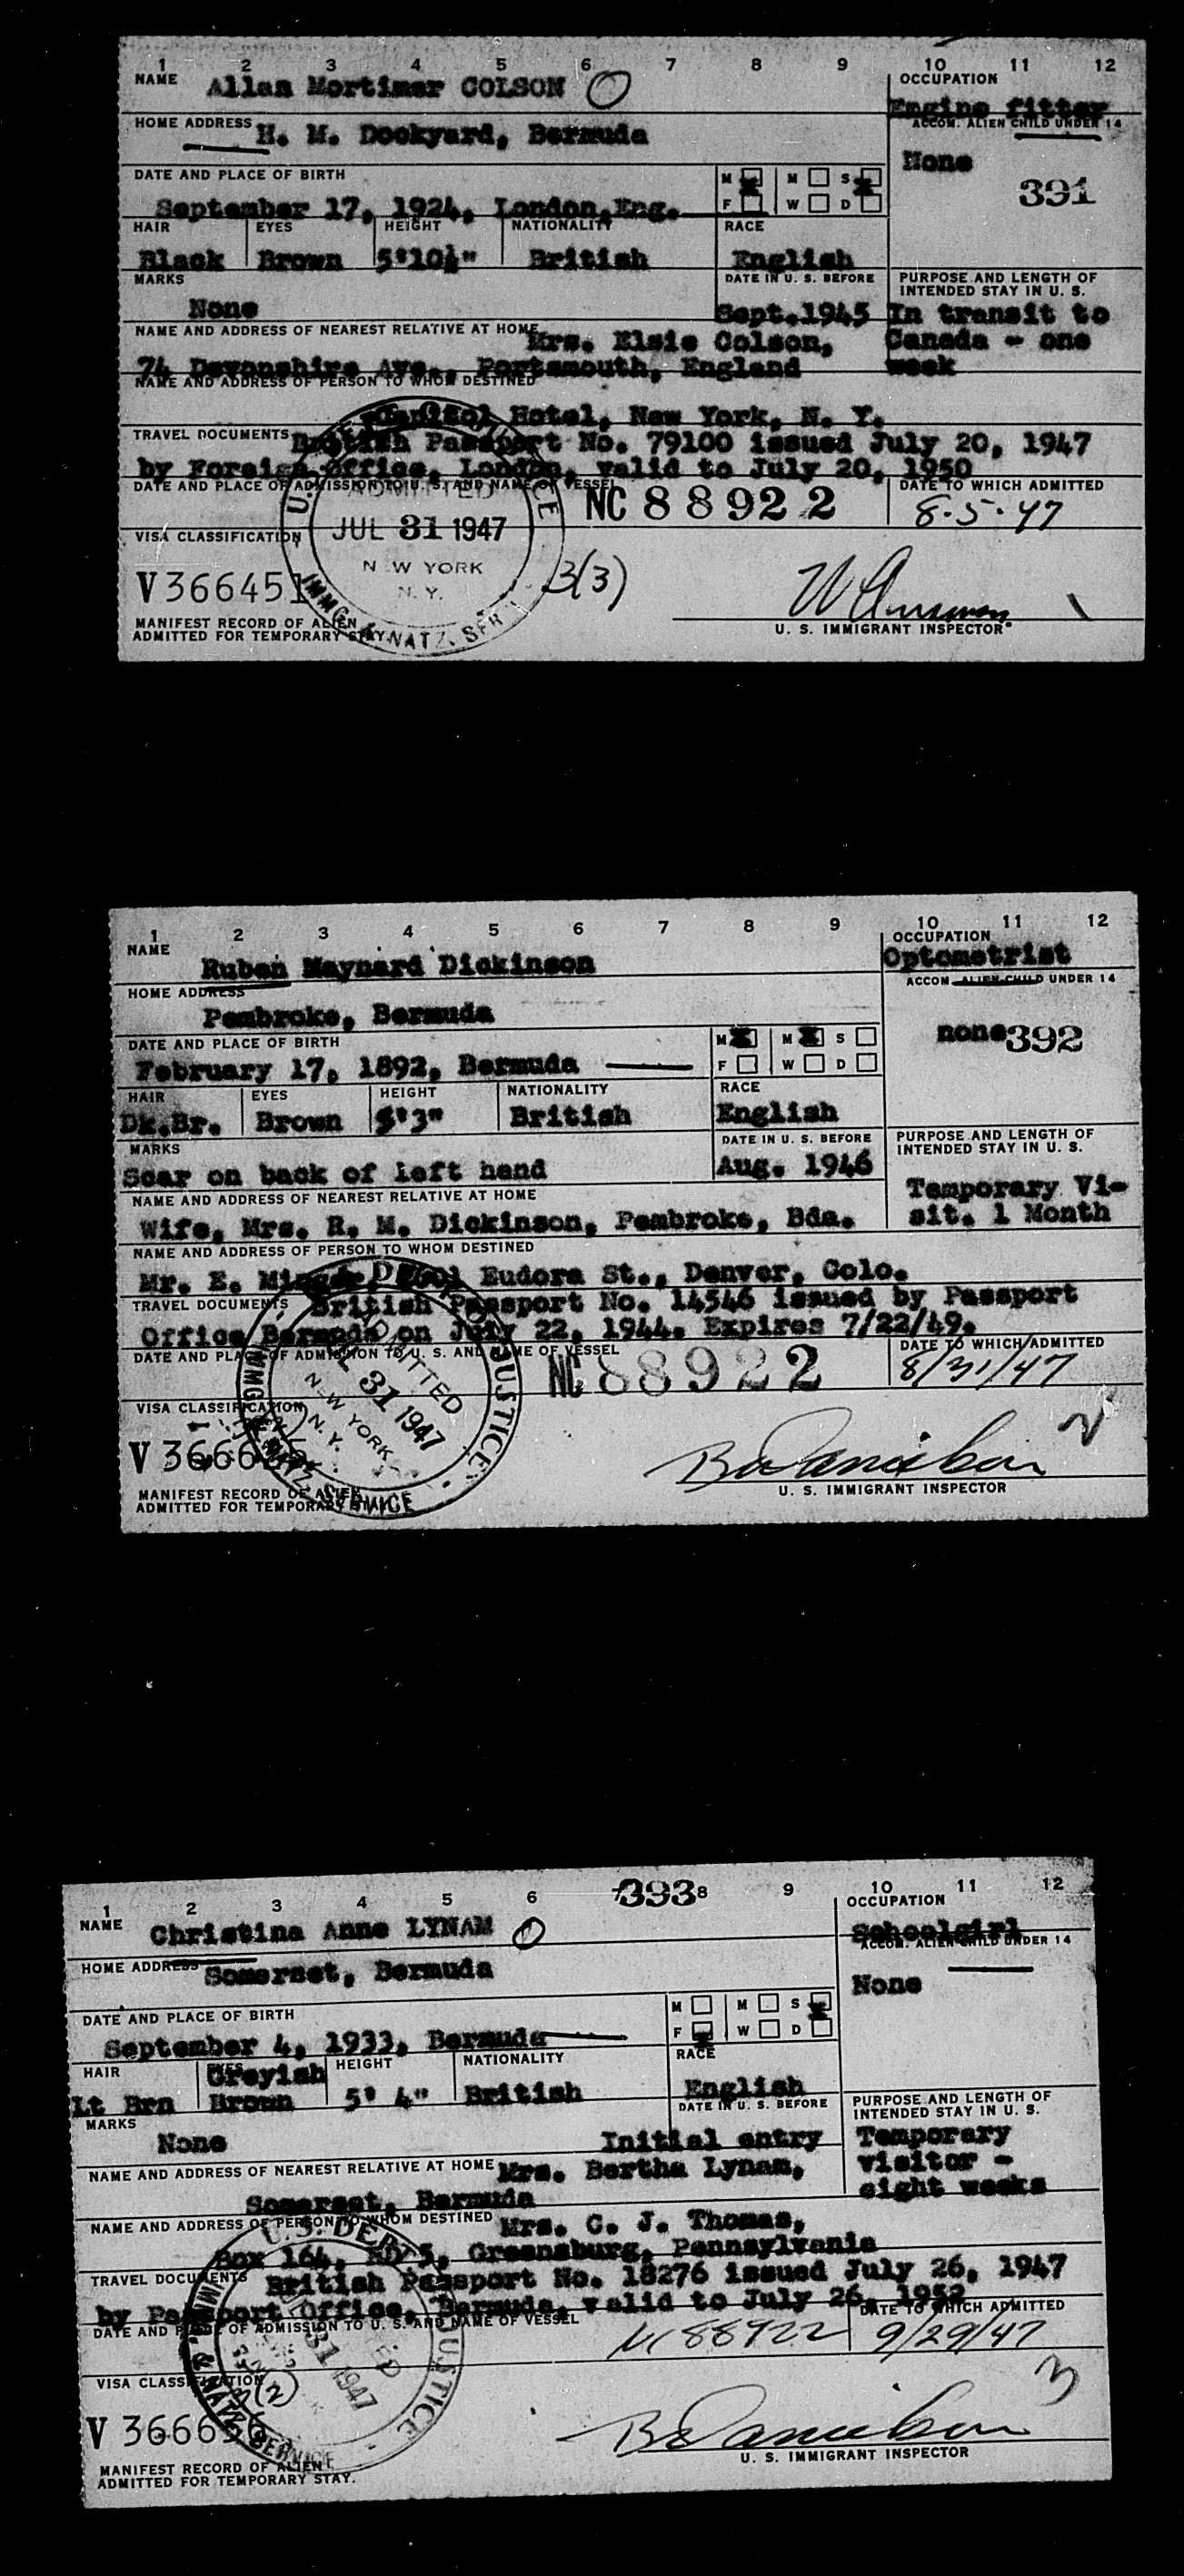 1 2 3 4 5 6 7 8 9 10 11 12
NAME Allan Mortimer COLSON O
OCCUPATION
Engine fitter
HOME ADDRESS H. M. Dockyard, Bermuda
ACCOM. ALIEN CHILD UNDER 14
None
391
DATE AND PLACE OF BIRTH
M M S
F W D
September 17, 1924, London, Eng.
HAIR EYES HEIGHT NATIONALITY RACE
Black Brown 5'10½" British English
MARKS DATE IN U. S. BEFORE PURPOSE AND LENGTH OF
INTENDED STAY IN U. S.
None Sept.1945 In transit to
NAME AND ADDRESS OF NEAREST RELATIVE AT HOME Mrs. Elsie Colson, Canada - one
74 Devonshire Ave., Portsmouth, England week
NAME AND ADDRESS OF PERSON TO WHOM DESTINED
Hotel, New York, N. Y.
TRAVEL DOCUMENTS British Passport No. 79100 issued July 20, 1947
by Foreign Office, London, valid to July 20, 1950
DATE AND PLACE OF ADMISSION TO U. S. AND NAME OF VESSEL DATE TO WHICH ADMITTED
ADMITTED
NC 88922 8-5-47
VISA CLASSIFICATION JUL 31 1947
NEW YORK
N. Y.
3(3)
V366451
IMMG. & NATZ. SER
MANIFEST RECORD OF ALIEN
ADMITTED FOR TEMPORARY STAY.
U. S. IMMIGRANT INSPECTOR
1 2 3 4 5 6 7 8 9 10 11 12
NAME Ruben Maynard Dickinson
OCCUPATION
Optometrist
HOME ADDRESS
ACCOM. ALIEN CHILD UNDER 14
Pembroke, Bermuda
none 392
DATE AND PLACE OF BIRTH
M M S
F W D
February 17, 1892, Bermuda
HAIR EYES HEIGHT NATIONALITY RACE
Dk.Br. Brown 5'3" British English
MARKS DATE IN U. S. BEFORE PURPOSE AND LENGTH OF
INTENDED STAY IN U. S.
Scar on back of left hand Aug. 1946
NAME AND ADDRESS OF NEAREST RELATIVE AT HOME Temporary Vi-
Wife, Mrs. R. M. Dickinson, Pembroke, Bda. sit. 1 Month
NAME AND ADDRESS OF PERSON TO WHOM DESTINED
Mr. E. Eudora St., Denver, Colo.
TRAVEL DOCUMENTS British Passport No. 14546 issued by Passport
Office Bermuda on July 22, 1944. Expires 7/22/49.
DATE AND PLACE OF ADMISSION TO U. S. AND NAME OF VESSEL DATE TO WHICH ADMITTED
ADMITTED
31 1947
NEW YORK
N. Y.
NC 88922 8/31/47
VISA CLASSIFICATION
V 3666
JUSTICE
SERVICE
2
MANIFEST RECORD OF ALIEN
ADMITTED FOR TEMPORARY STAY.
U. S. IMMIGRANT INSPECTOR
1 2 3 4 5 6 7 393 8 9 10 11 12
NAME Christina Anne LYNAM O
OCCUPATION
Schoolgirl
HOME ADDRESS Somerset, Bermuda
ACCOM. ALIEN CHILD UNDER 14
None
DATE AND PLACE OF BIRTH
M M S
F W D
September 4, 1933, Bermuda
HAIR EYES HEIGHT NATIONALITY RACE
Lt Brn Greyish Brown 5' 4" British English
MARKS DATE IN U. S. BEFORE PURPOSE AND LENGTH OF
INTENDED STAY IN U. S.
None Initial entry Temporary
NAME AND ADDRESS OF NEAREST RELATIVE AT HOME Mrs. Bertha Lynam, visitor -
Somerset, Bermuda eight weeks
NAME AND ADDRESS OF PERSON TO WHOM DESTINED Mrs. C. J. Thomas,
Box 164, RD 5, Greensburg, Pennsylvania
TRAVEL DOCUMENTS British Passport No. 18276 issued July 26, 1947
by Passport Office, Bermuda, valid to July 26, 1952
DATE AND PLACE OF ADMISSION TO U. S. AND NAME OF VESSEL DATE TO WHICH ADMITTED
NC 88922 9/29/47
U.S. DEP
JUSTICE
31 1947
VISA CLASSIFICATION
3(2)
3
V 366656
SERVICE
MANIFEST RECORD OF ALIEN
ADMITTED FOR TEMPORARY STAY.
U. S. IMMIGRANT INSPECTOR